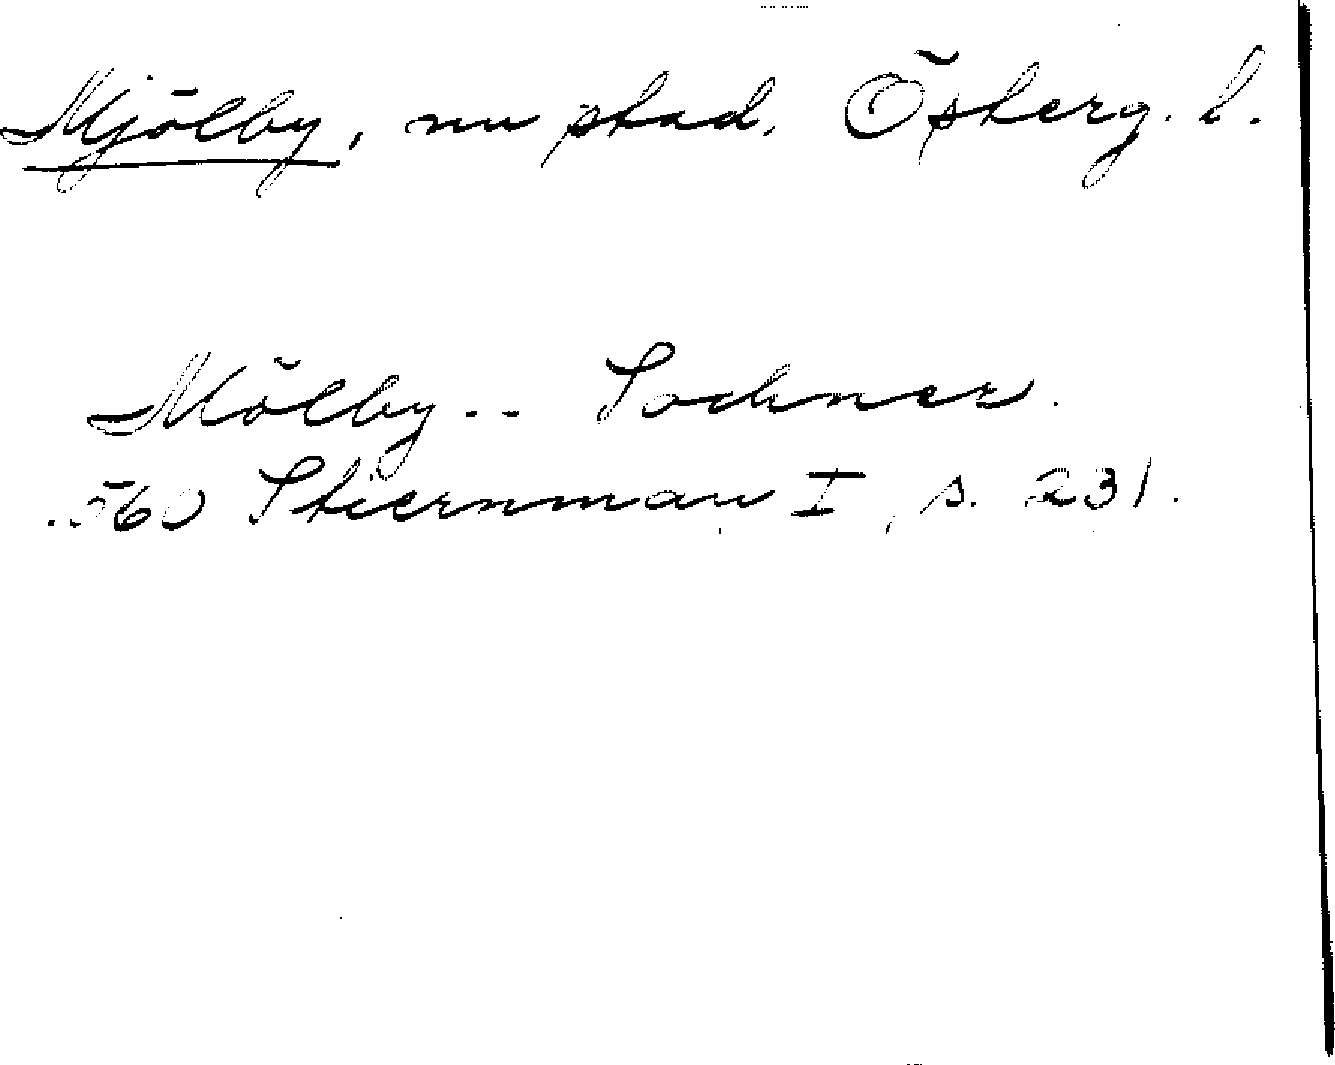 Mjölby, nu stad. Österg. l.
Mölby -- Sochner.
.. 560 Stiernman I, s. 231.